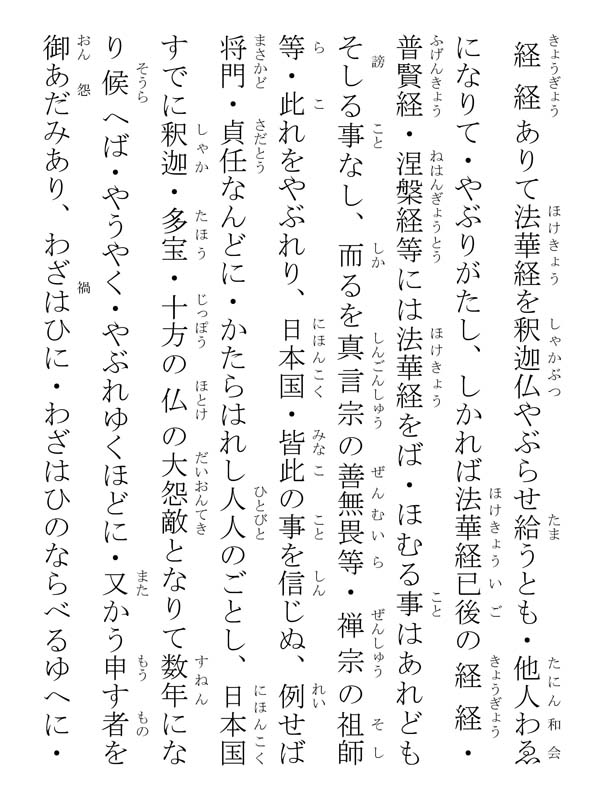 経経ありて法華経を釈迦仏やぶらせ給うとも・他人わゑ
になりて・やぶりがたし、しかれば法華経已後の経経・
普賢経・涅槃経等には法華経をば・ほむる事はあれども
そしる事なし、而るを真言宗の善無畏等・禅宗の祖師
等・此れをやぶれり、日本国・皆此の事を信じぬ、例せば
将門・貞任なんどに・かたらはれし人人のごとし、日本国
すでに釈迦・多宝・十方の仏の大怨敵となりて数年にな
り候へば・やうやく・やぶれゆくほどに・又かう申す者を
御あだみあり、わざはひに・わざはひのならべるゆへに・